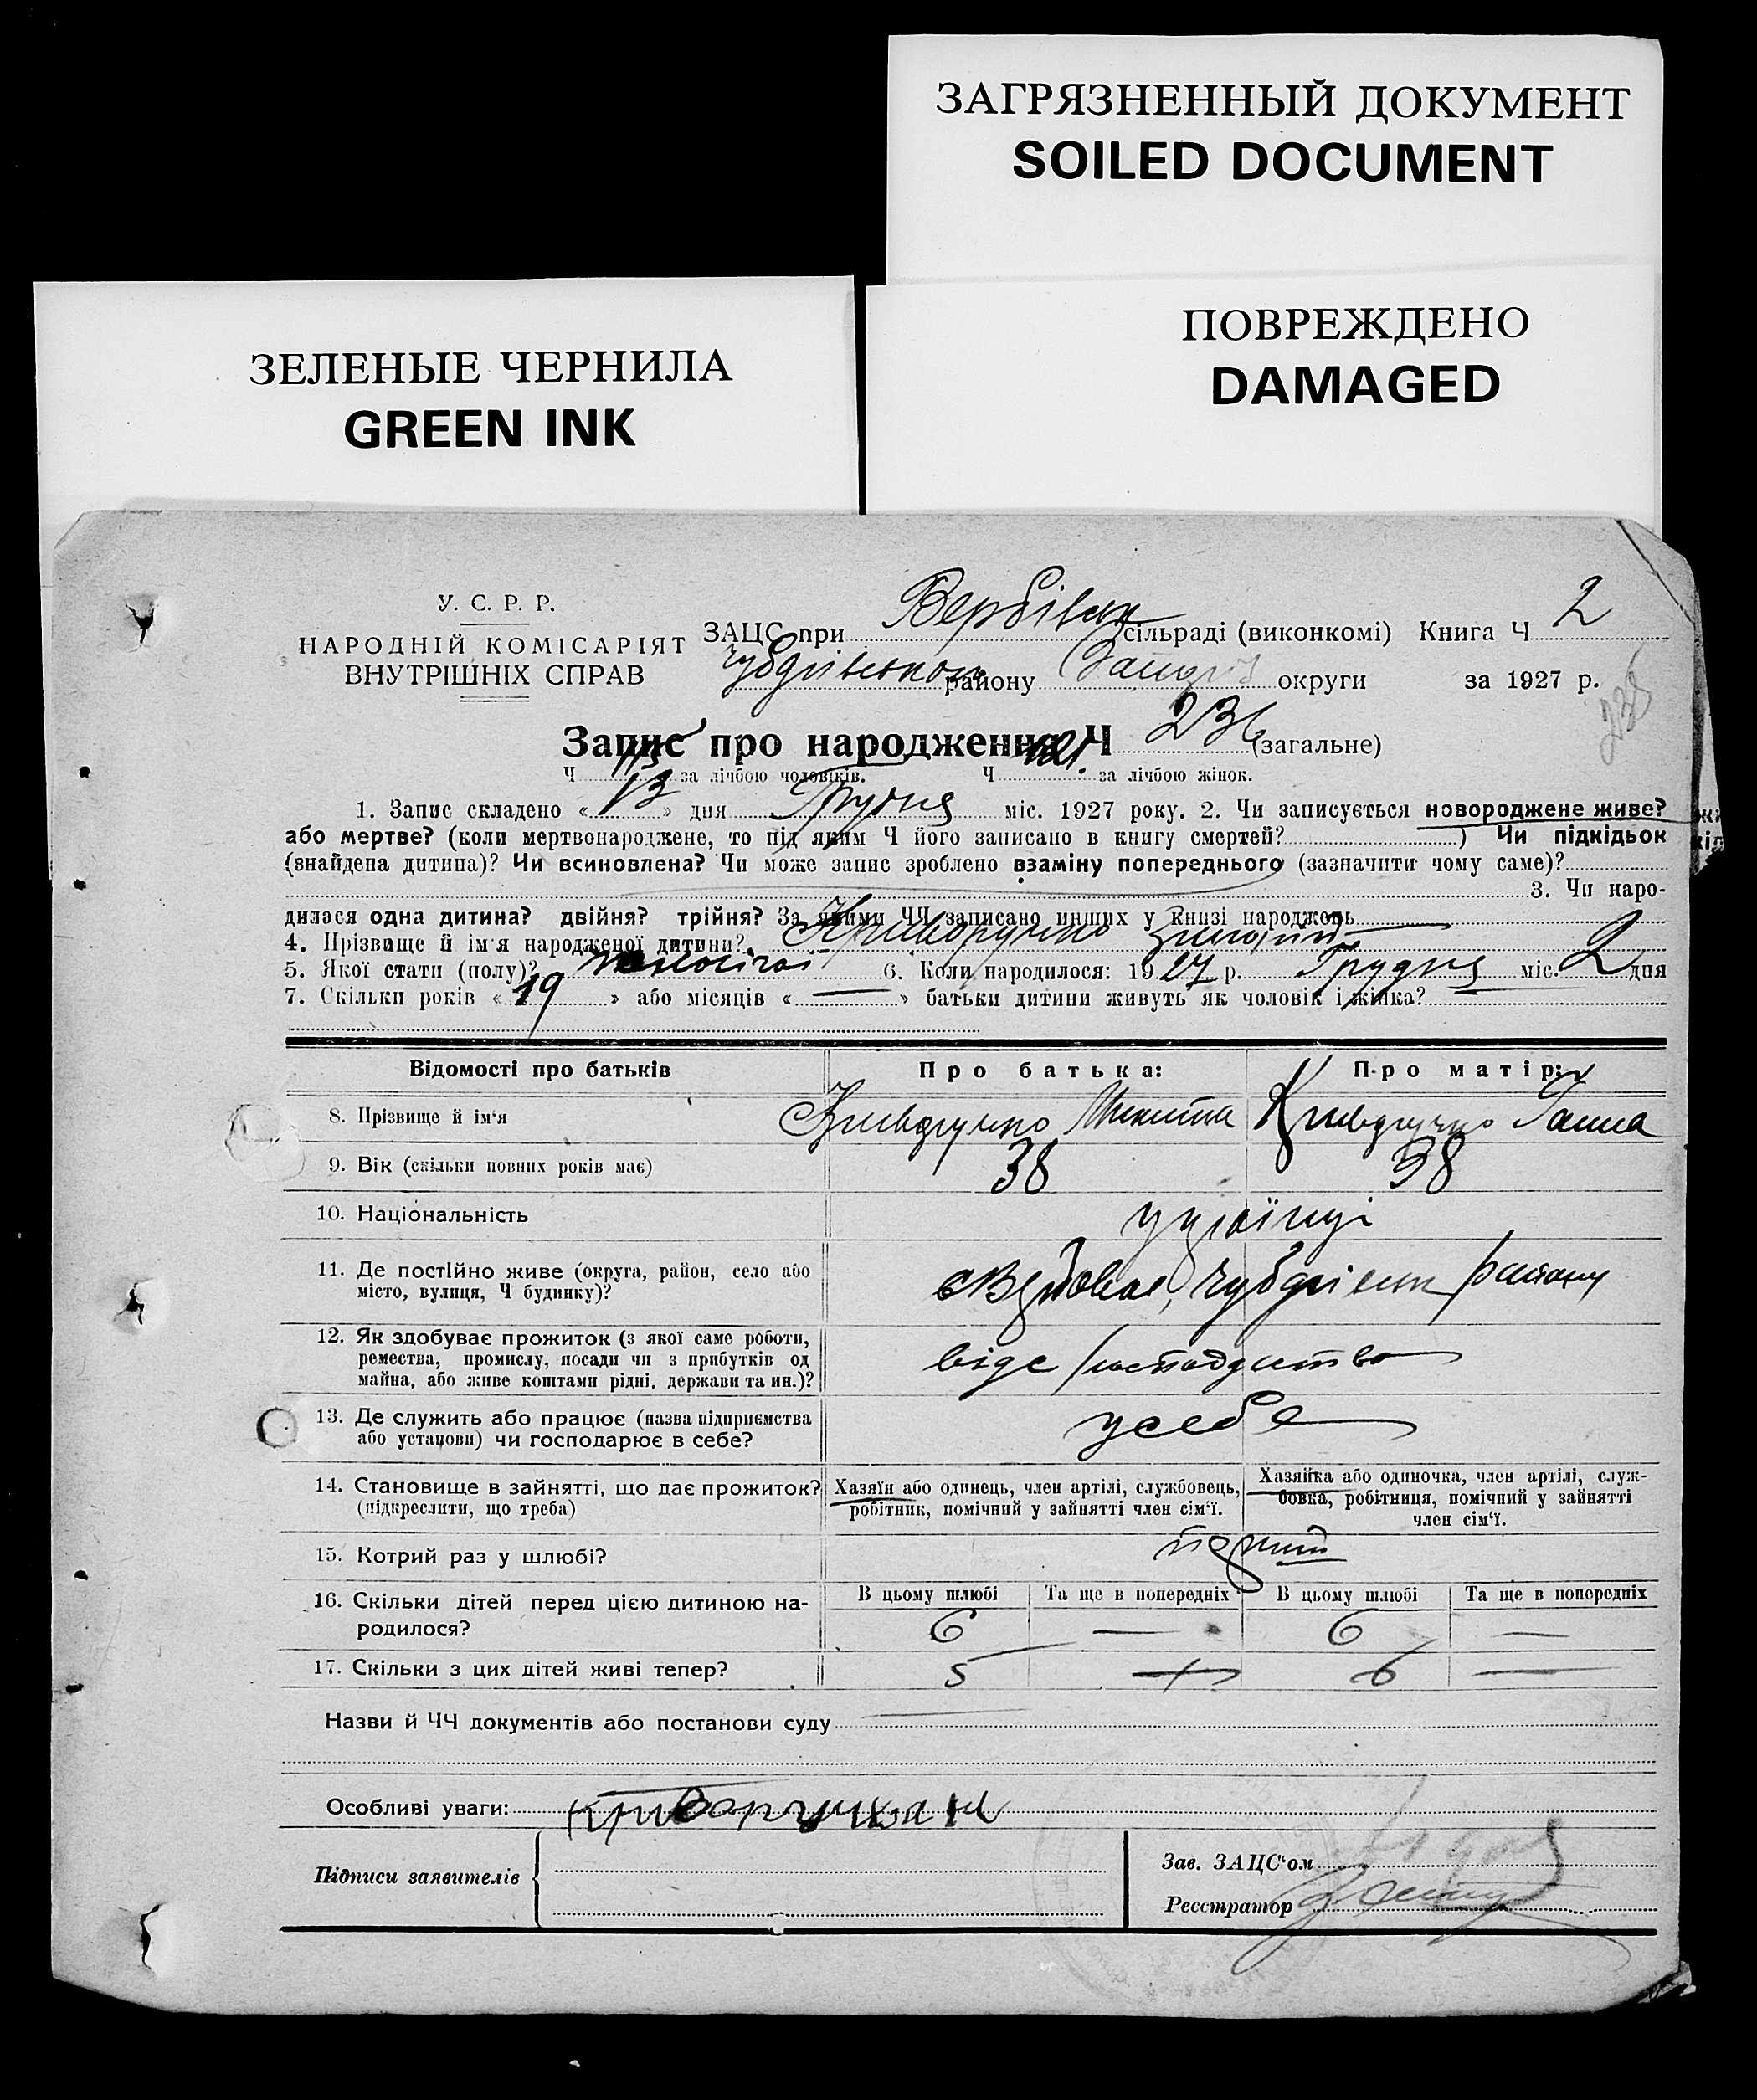 ЗАГРЯЗНЕННЫЙ ДОКУМЕНТ
SOILED DOCUMENT
ПОВРЕЖДЕНО
DAMAGED
ЗЕЛЕНЫЕ ЧЕРНИЛА
GREEN INK
У. С. Р. Р.
НАРОДНІЙ КОМІСАРІЯТ
ВНУТРІШНІХ СПРАВ
ЗАЦС при сільраді (виконкомі) Книга Ч 2
району округи за 1927 р.
235
Запис про народження Ч 236 (загальне)
Ч 115 за лічбою чоловіків. Ч 121 за лічбою жінок.
1. Запис складено « 13 » дня Грудня міс. 1927 року. 2. Чи записується новороджене живе?
або мертве? (коли мертвонароджене, то під яким Ч його записано в книгу смертей? ) Чи підкідьок
(знайдена дитина)? Чи всиновлена? Чи може запис зроблено взаміну попереднього (зазначити чому саме)?
3. Чи наро-
дилася одна дитина? двійня? трійня? За якими ЧЧ записано инших у книзі народжень
4. Прізвище й ім'я народженої дитини? Криворучко
5. Якої стати (полу)? 6. Коли народилося: 19 27 р. Грудня міс. 2 дня
7. Скільки років « 19 » або місяців « — » батьки дитини живуть як чоловік і жінка?
Відомості про батьків Про батька: Про матір:
8. Прізвище й ім'я Криворучко Микита Криворучко Ганна
9. Вік (скільки повних років має) 38 38
10. Національність українці
11. Де постійно живе (округа, район, село або
місто, вулиця, Ч будинку)? району
12. Як здобуває прожиток (з якої саме роботи,
ремества, промислу, посади чи з прибутків од
майна, або живе коштами рідні, держави та ин.)?
13. Де служить або працює (назва підприємства
або установи) чи господарює в себе? у себе
14. Становище в зайнятті, що дає прожиток? Хазяїн або одинець, член артілі, службовець, Хазяйка або одиночка, член артілі, служ-
(підкреслити, що треба) робітник, помічний у зайнятті член сім'ї. бовка, робітниця, помічний у зайнятті
член сім'ї.
15. Котрий раз у шлюбі? перший
В цьому шлюбі Та ще в попередніх В цьому шлюбі Та ще в попередніх
16. Скільки дітей перед цією дитиною на-
родилося? 6 — 6 —
17. Скільки з цих дітей живі тепер? 5 6 —
Назви й ЧЧ документів або постанови суду
Особливі уваги:
Підписи заявителів
Зав. ЗАЦС'ом
Реєстратор